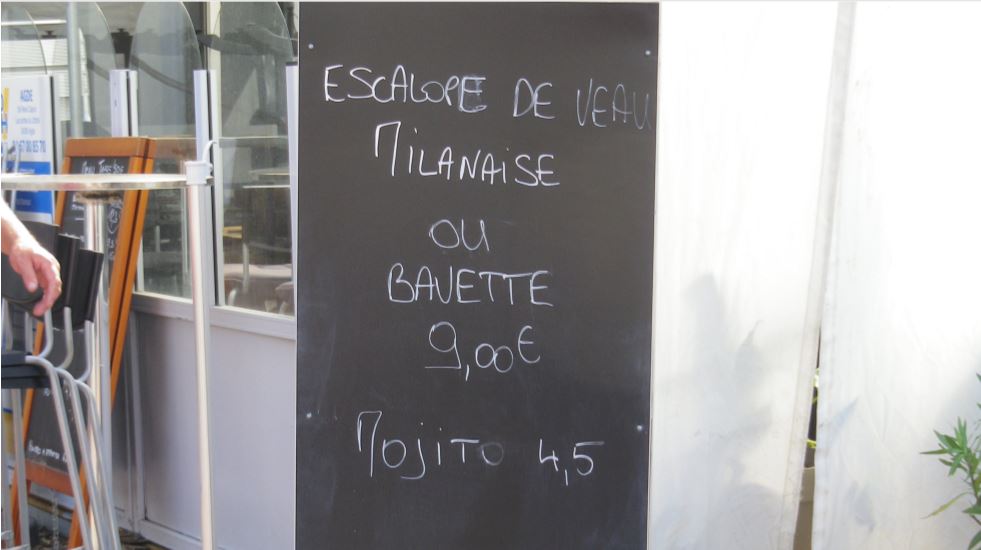 AGDE
ESCALOPE DE VEAU
MILANAISE
OU
BAVETTE
9,00€
MOJITO 4,5